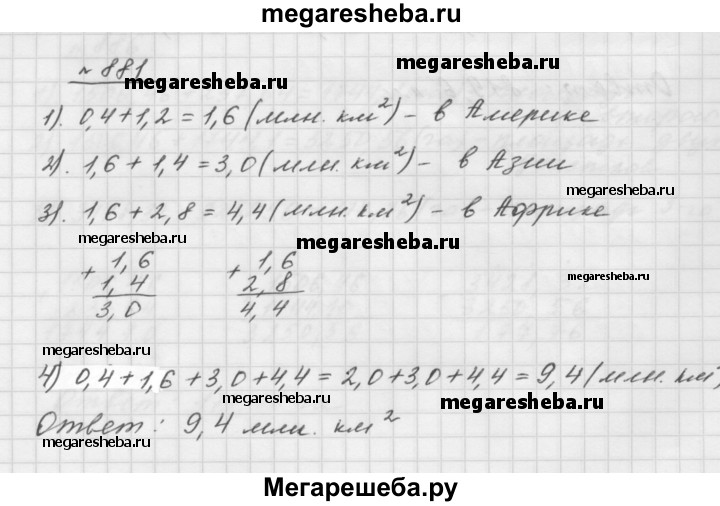 megaresheba.ru
№ 881
megaresheba.ru
megaresheba.ru
1). 0,4+1,2=1,6 (млн. км²) - в Америке
megaresheba.ru
2). 1,6+1,4=3,0 (млн. км²) - в Азии
megaresheba.ru
3). 1,6+2,8=4,4 (млн. км²) - в Африке
megaresheba.ru
megaresheba.ru
+ 1,6 + 1,6
1,4 2,8
megaresheba.ru
3,0 4,4
megaresheba.ru
4) 0,4+1,6+3,0+4,4=2,0+3,0+4,4=9,4 (млн. км
megaresheba.ru
Ответ: 9,4 млн. км²
megaresheba.ru
Мегарешеба.ру